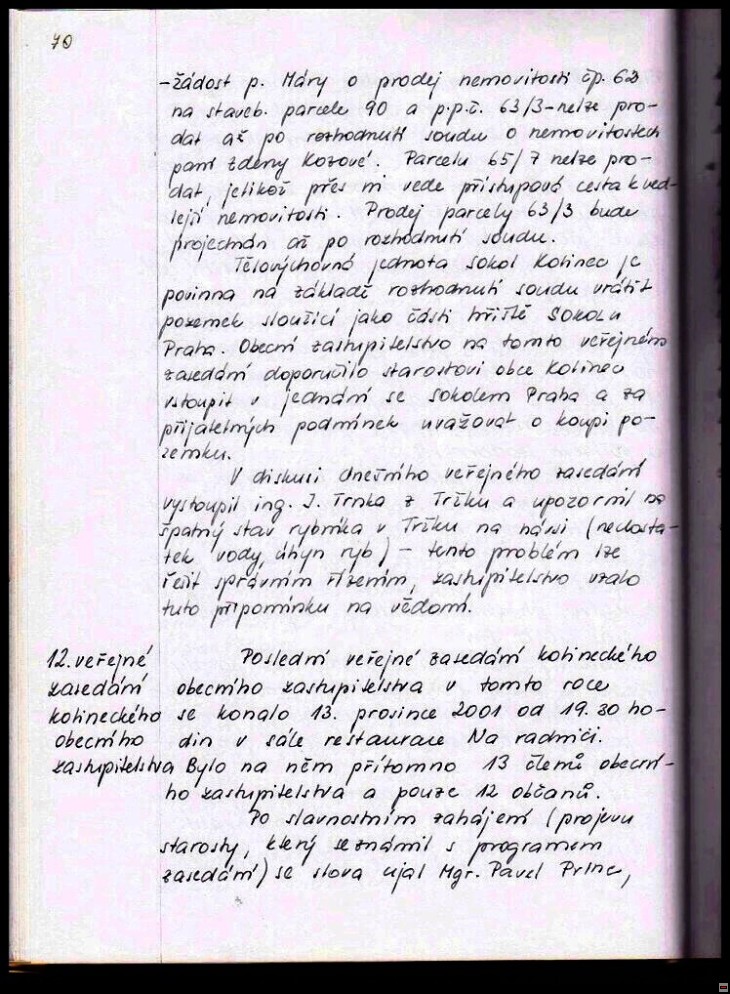 70
-žádost p. Máry o prodej nemovitosti čp. 62
na staveb. parcele 90 a p.p.č. 63/3-nelze pro-
dat až po rozhodnutí soudu o nemovitostech
paní Zdeny Kozové. Parcelu 65/7 nelze pro-
dat, jelikož přes ni vede přístupová cesta k ved-
lejší nemovitosti. Prodej parcely 63/3 bude
projednán až po rozhodnutí soudu.
Tělovýchovná jednota sokol Kolinec je
povinna na základě rozhodnutí soudu vrátit
pozemek sloužící jako části hřiště SOKOLU
Praha. Obecní zastupitelstvo na tomto veřejném
zasedání doporučilo starostovi obce Kolinec
vstoupit v jednání se sokolem Praha a za
přijatelných podmínek uvažovat o koupi po-
zemku.
V diskusi dnešního veřejného zasedání
vystoupil ing. J. Trnka z Tržku a upozornil na
špatný stav rybníka v Tržku na návsi (nedosta-
tek vody, úhyn ryb) - tento problém lze
řešit správním řízením, zastupitelstvo vzalo
tuto připomínku na vědomí.
12. veřejné
zasedání
kolineckého
obecního
zastupitelstva
Poslední veřejné zasedání kolineckého
obecního zastupitelstva v tomto roce
se konalo 13. prosince 2001 od 19.30 ho-
din v sále restaurace Na radnici.
Bylo na něm přítomno 13 členů obecní-
ho zastupitelstva a pouze 12 občanů.
Po slavnostním zahájení (projevu
starosty, který seznámil s programem
zasedání) se slova ujal Mgr. Pavel Princ,